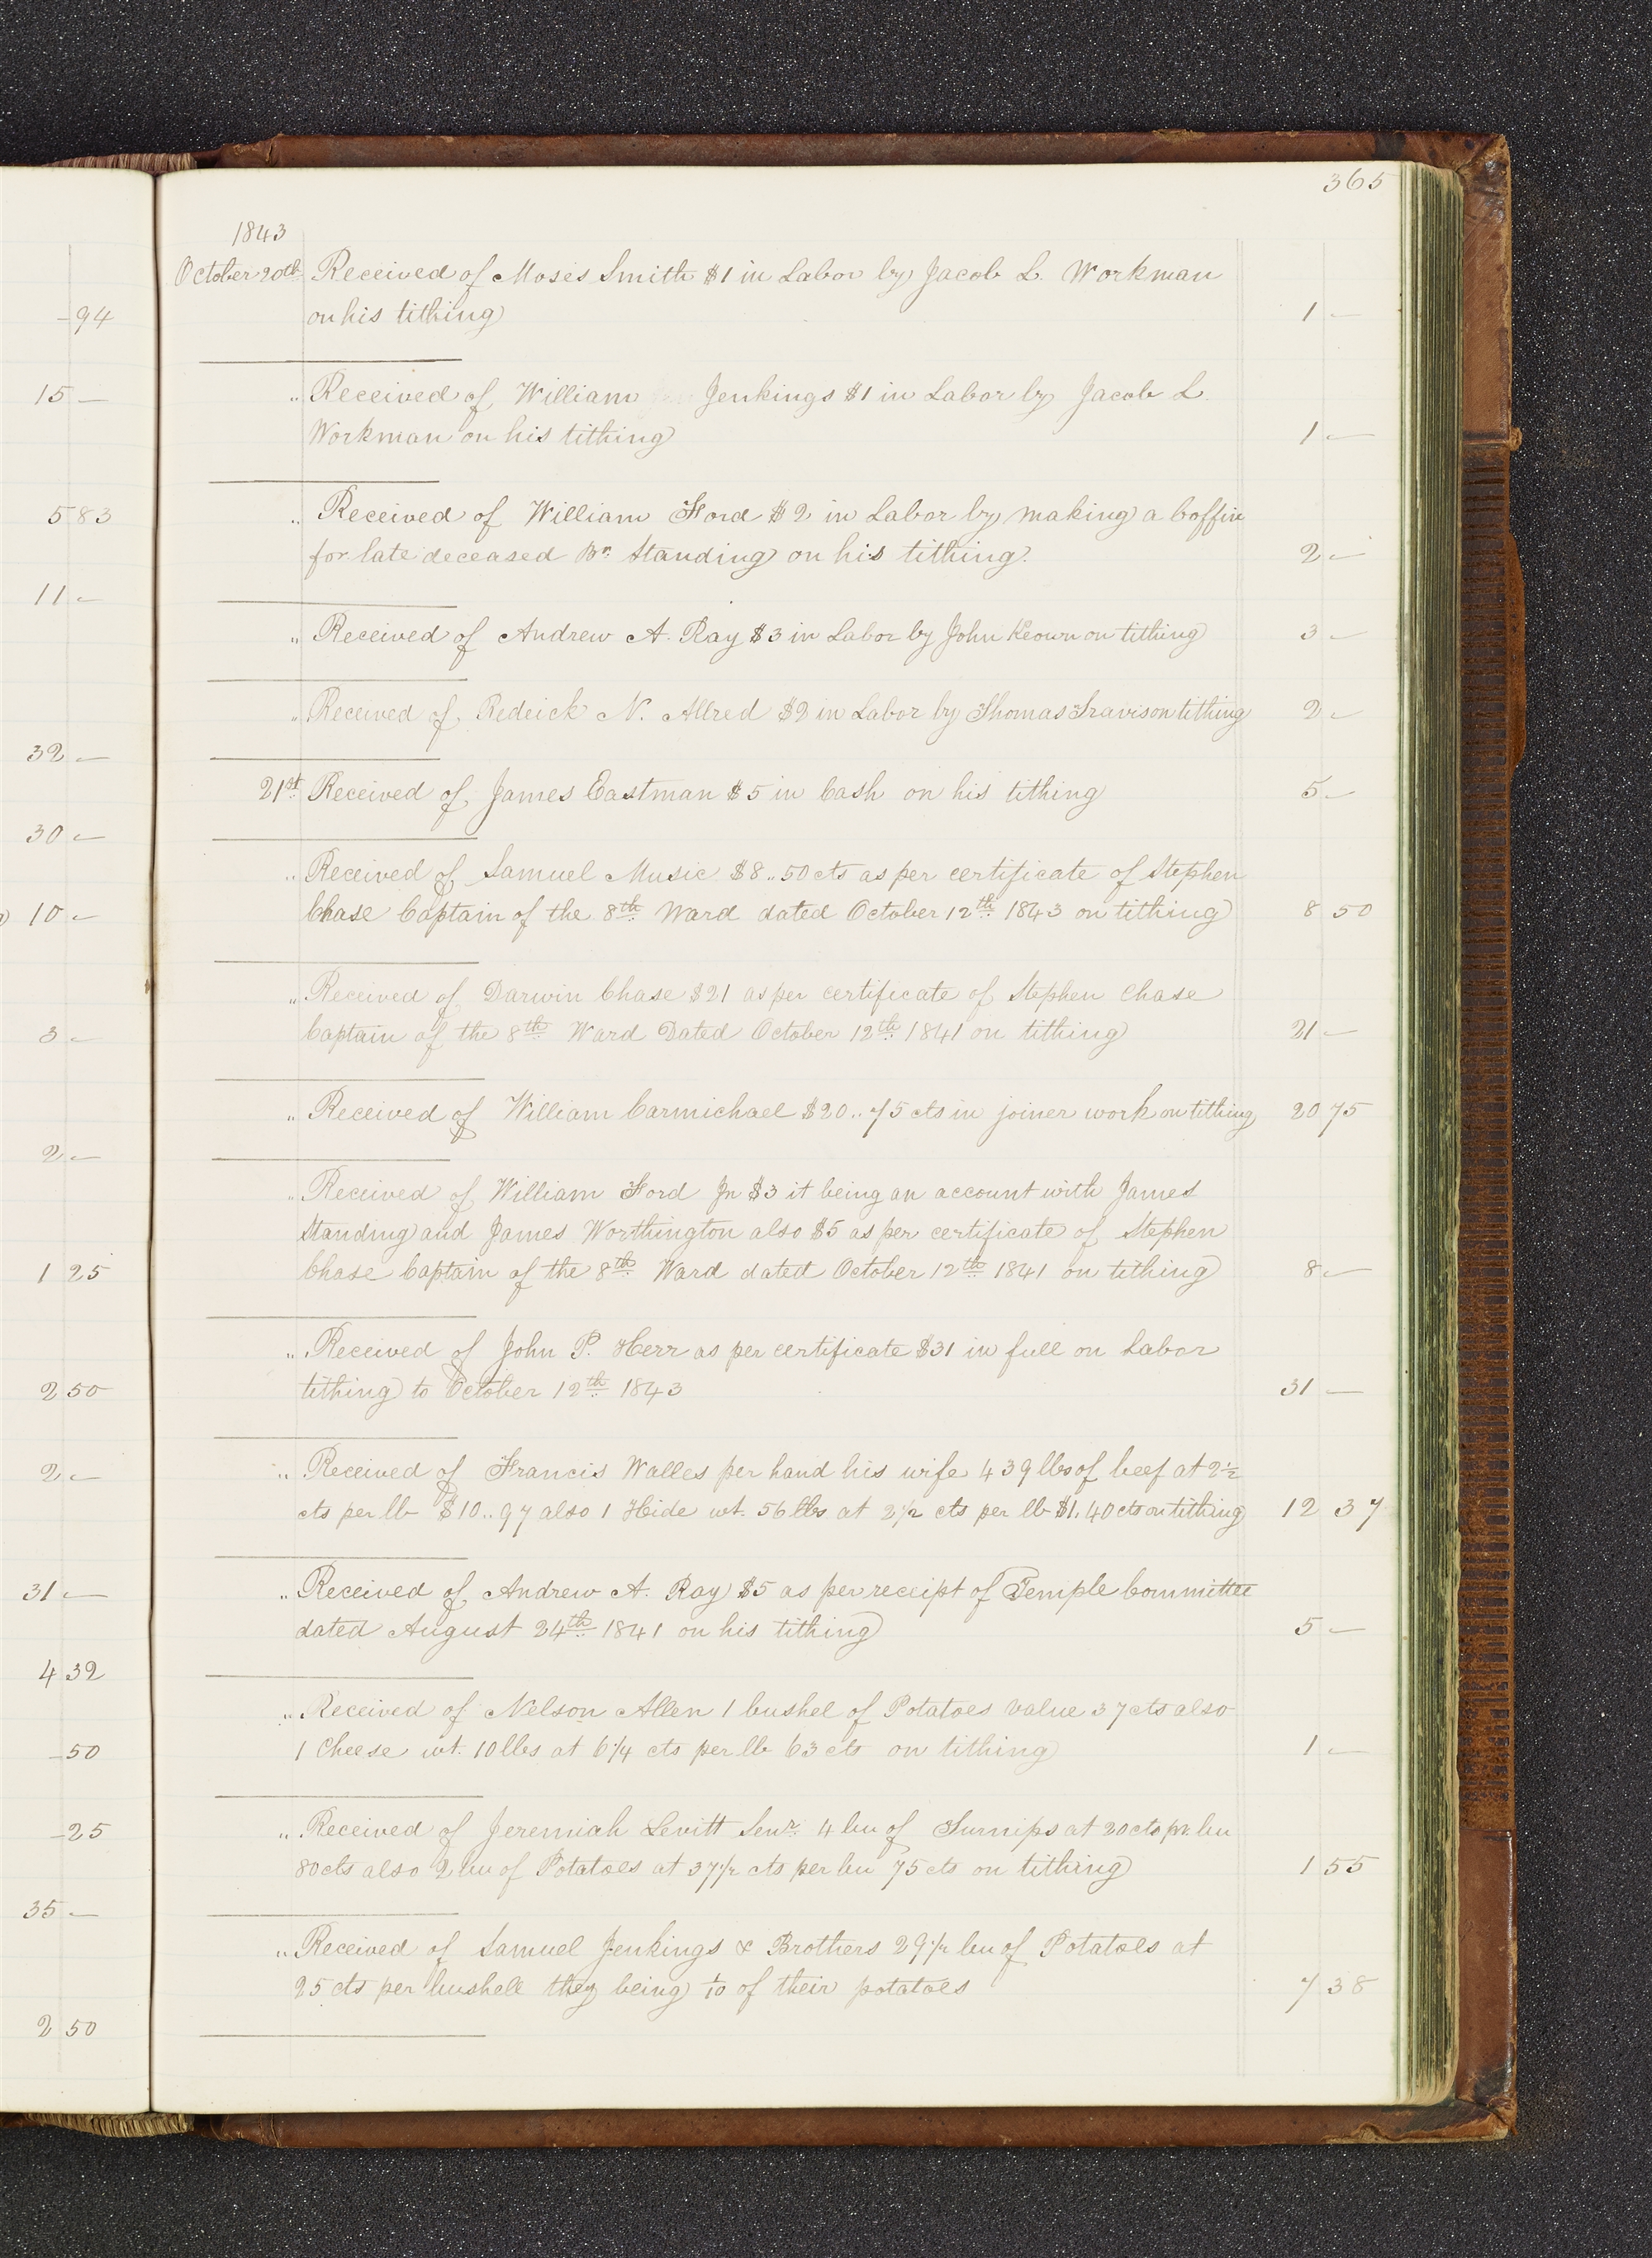 365
1843
October 20th Received of Moses Smith $1 in Labor by Jacob L. Workman
on his tithing 1 —
" Received of William Jenkings $1 in Labor by Jacob L
Workman on his tithing 1 —
" Received of William Ford $2 in Labor by making a Coffin
for late deceased Br. Standing on his tithing. 2 —
" Received of Andrew A. Ray $3 in Labor by John Keown on tithing 3 —
" Received of Redeick N. Allred $2 in Labor by Thomas Travis on tithing 2 —
21st Received of James Eastman $5 in Cash on his tithing 5 —
" Received of Samuel Music $8..50 cts as per certificate of Stephen
Chase Captain of the 8th Ward dated October 12th 1843 on tithing 8 50
" Received of Darwin Chase $21 as per certificate of Stephen Chase
Captain of the 8th Ward Dated October 12th 1841 on tithing 21 —
" Received of William Carmichael $20..75 cts in joiner work on tithing 20 75
" Received of William Ford Jn $3 it being an account with James
Standing and James Worthington also $5 as per certificate of Stephen
Chase Captain of the 8th Ward dated October 12th 1841 on tithing 8 —
" Received of John P. Herr as per certificate $31 in full on Labor
tithing to October 12th 1843 31 —
" Received of Francis Walles per hand his wife 439 lbs of beef at 2½
cts per lb $10..97 also 1 Hide wt. 56 lbs at 2½ cts per lb $1.40 cts on tithing 12 37
" Received of Andrew A. Ray $5 as per receipt of Temple Committee
dated August 24th 1841 on his tithing 5 —
" Received of Nelson Allen 1 bushel of Potatoes value 37 cts also
1 Cheese wt. 10 lbs at 6¼ cts per lb 63 cts on tithing 1 —
" Received of Jeremiah Levitt Senr. 4 bu of Turnips at 20 cts pr. bu
80 cts also 2 bu of Potatoes at 37½ cts per bu 75 cts on tithing 1 55
" Received of Samuel Jenkings & Brothers 29½ bu of Potatoes at
25 cts per bushell they being 1/10 of their potatoes 7 38
– 94
15 —
5 83
11 —
32 —
30 —
10 —
3 —
2 —
1 25
2 50
2 —
31 —
4 32
– 50
– 25
35 —
2 50